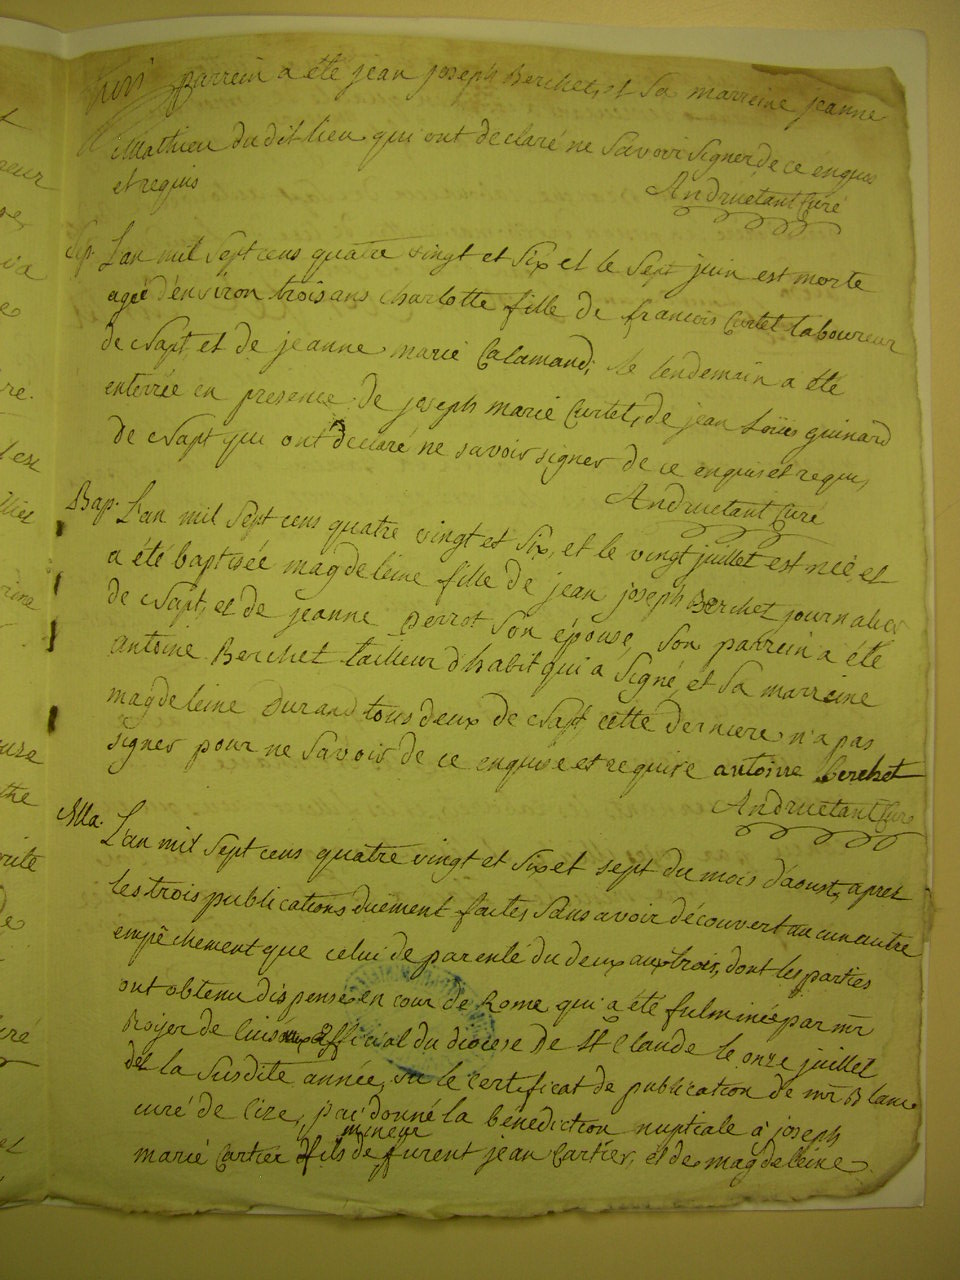 parrein a été jean joseph Berchet, et sa marreine jeanne
Mathieu du dit lieu qui ont declaré ne savoir signer de ce enquis
et requis
Andruetant Curé
Sep. L'an mil sept cens quatre vingt et six et le sept juin est morte
agée d'environ trois ans charlotte fille de francois Curtet laboureur
de Napt, et de jeanne marie Calamand; le lendemain a été
enterrée en presence de joseph marie Curtet, de jean Loüis guinard
de Napt qui ont declaré ne savoir signer de ce enquis et requis
Andruetant Curé
Bap. L'an mil sept cens quatre vingt et six, et le vingt juillet est née, et
a été baptisée magdeleine fille de jean joseph Berchet journalier
de Napt, et de jeanne perrot son épouse, son parrein a été
antoine Berchet tailleur d'habit qui a signé, et sa marreine
magdeleine Durand tous deux de Napt, cette derniere n'a pas
signer pour ne savoir de ce enquise et requise antoine berchet
Andruetant Curé
Ma. L'an mil sept cens quatre vingt et six et sept du mois d'aoust, apres
les trois publications duement faites sans avoir découvert aucun autre
empêchement que celui de parenté du deux au trois, dont les parties
ont obtenu dispense en cour de Rome, qui a été fulminée par mr
Royer de official du diocese De St Claude le onze juillet
de la susdite année, vu le certificat de publication de mr Blanc
curé de Cize, j'ai donné la bénédiction nuptiale à joseph
mineur
marie Cartier fils de furent jean Cartier, et de magdeleine